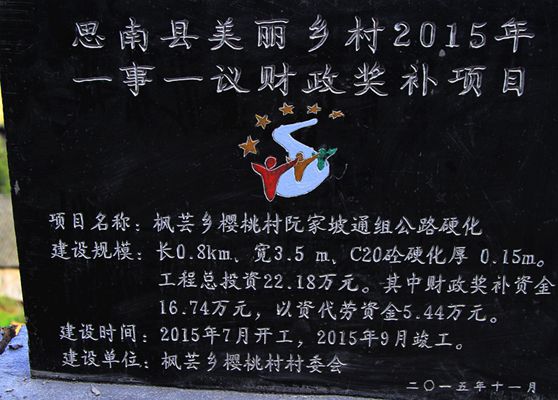 思南县美丽乡村2015年
一事一议财政奖补项目
项目名称：枫芸乡樱桃村阮家坡通组公路硬化
建设规模：长0.8km、宽3.5 m、C20砼硬化厚 0.15m。
工程总投资22.18万元。其中财政奖补资金
16.74万元，以资代劳资金5.44万元。
建设时间：2015年7月开工，2015年9月竣工。
建设单位：枫芸乡樱桃村村委会
二〇一五年十一月